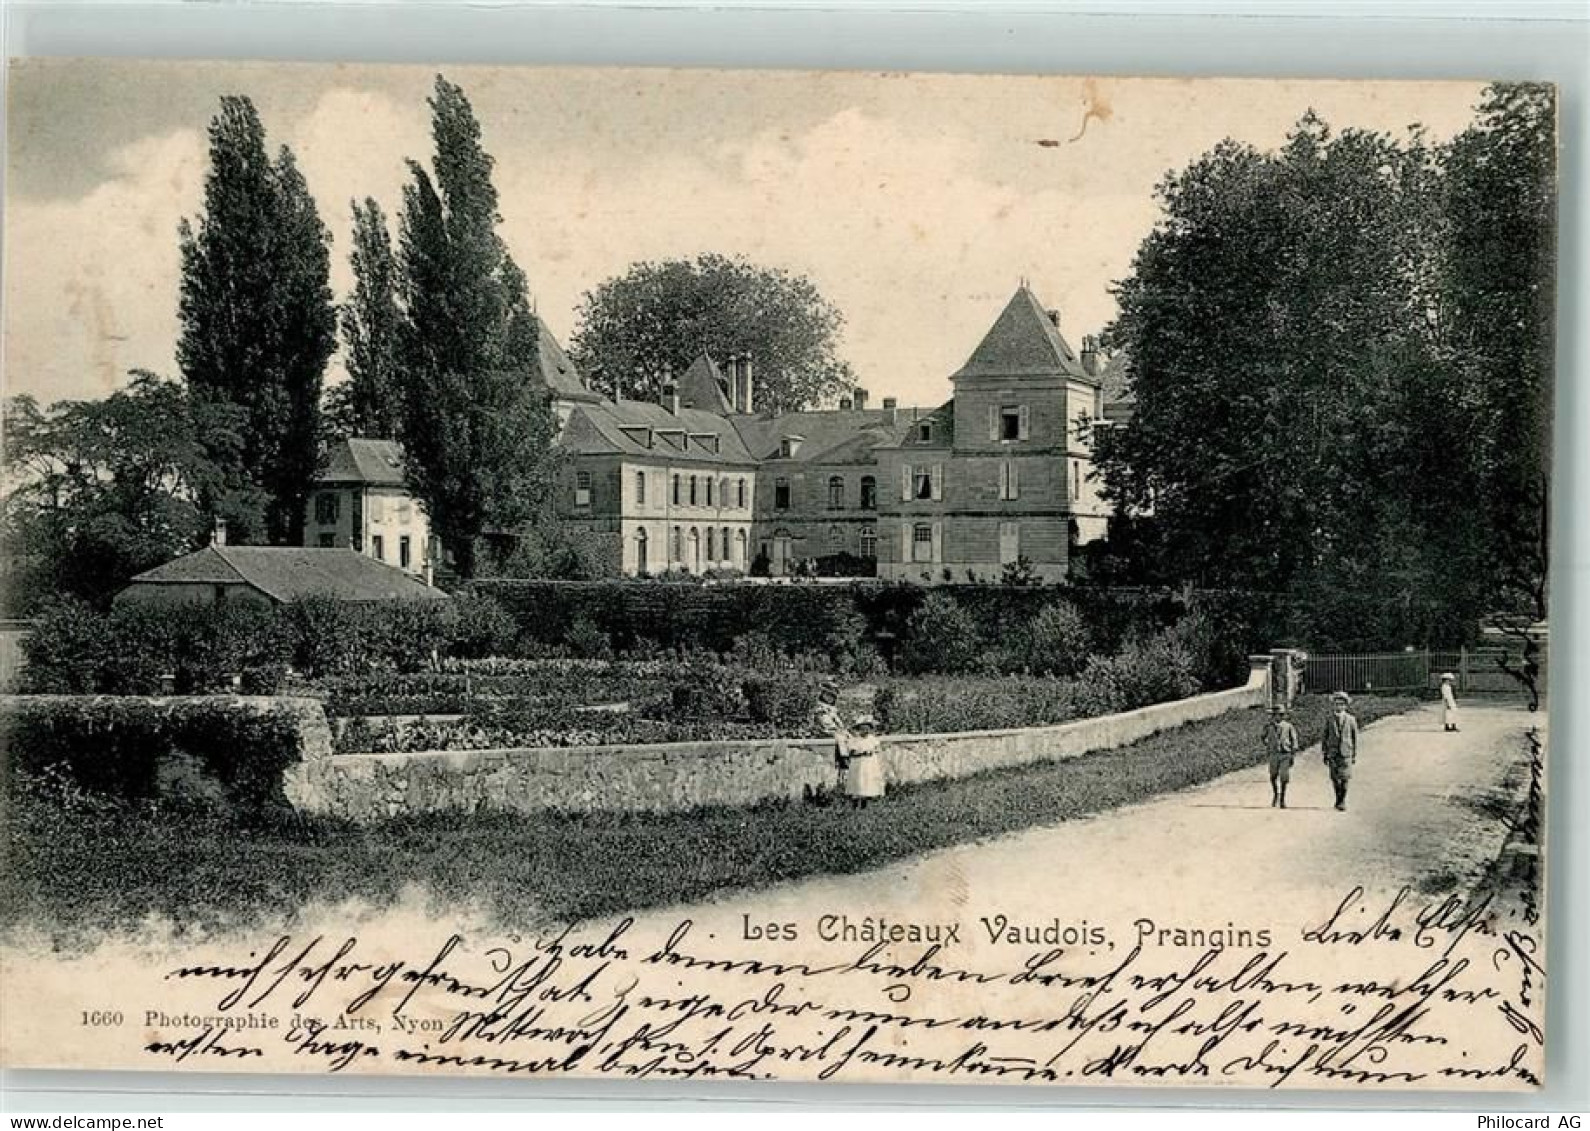 Les Châteaux Vaudois, Prangins
Liebe Else.
Habe deinen lieben Brief erhalten, welcher
mich sehr gefreut hat. Zeige Dir nun an daß ich also nächsten
Mittwoch, den 1. April heimkomme. Werde Dich nun in den
ersten Tage einmal besuchen.
1660 Photographie des Arts, Nyon
delcampe.net
Philocard AG